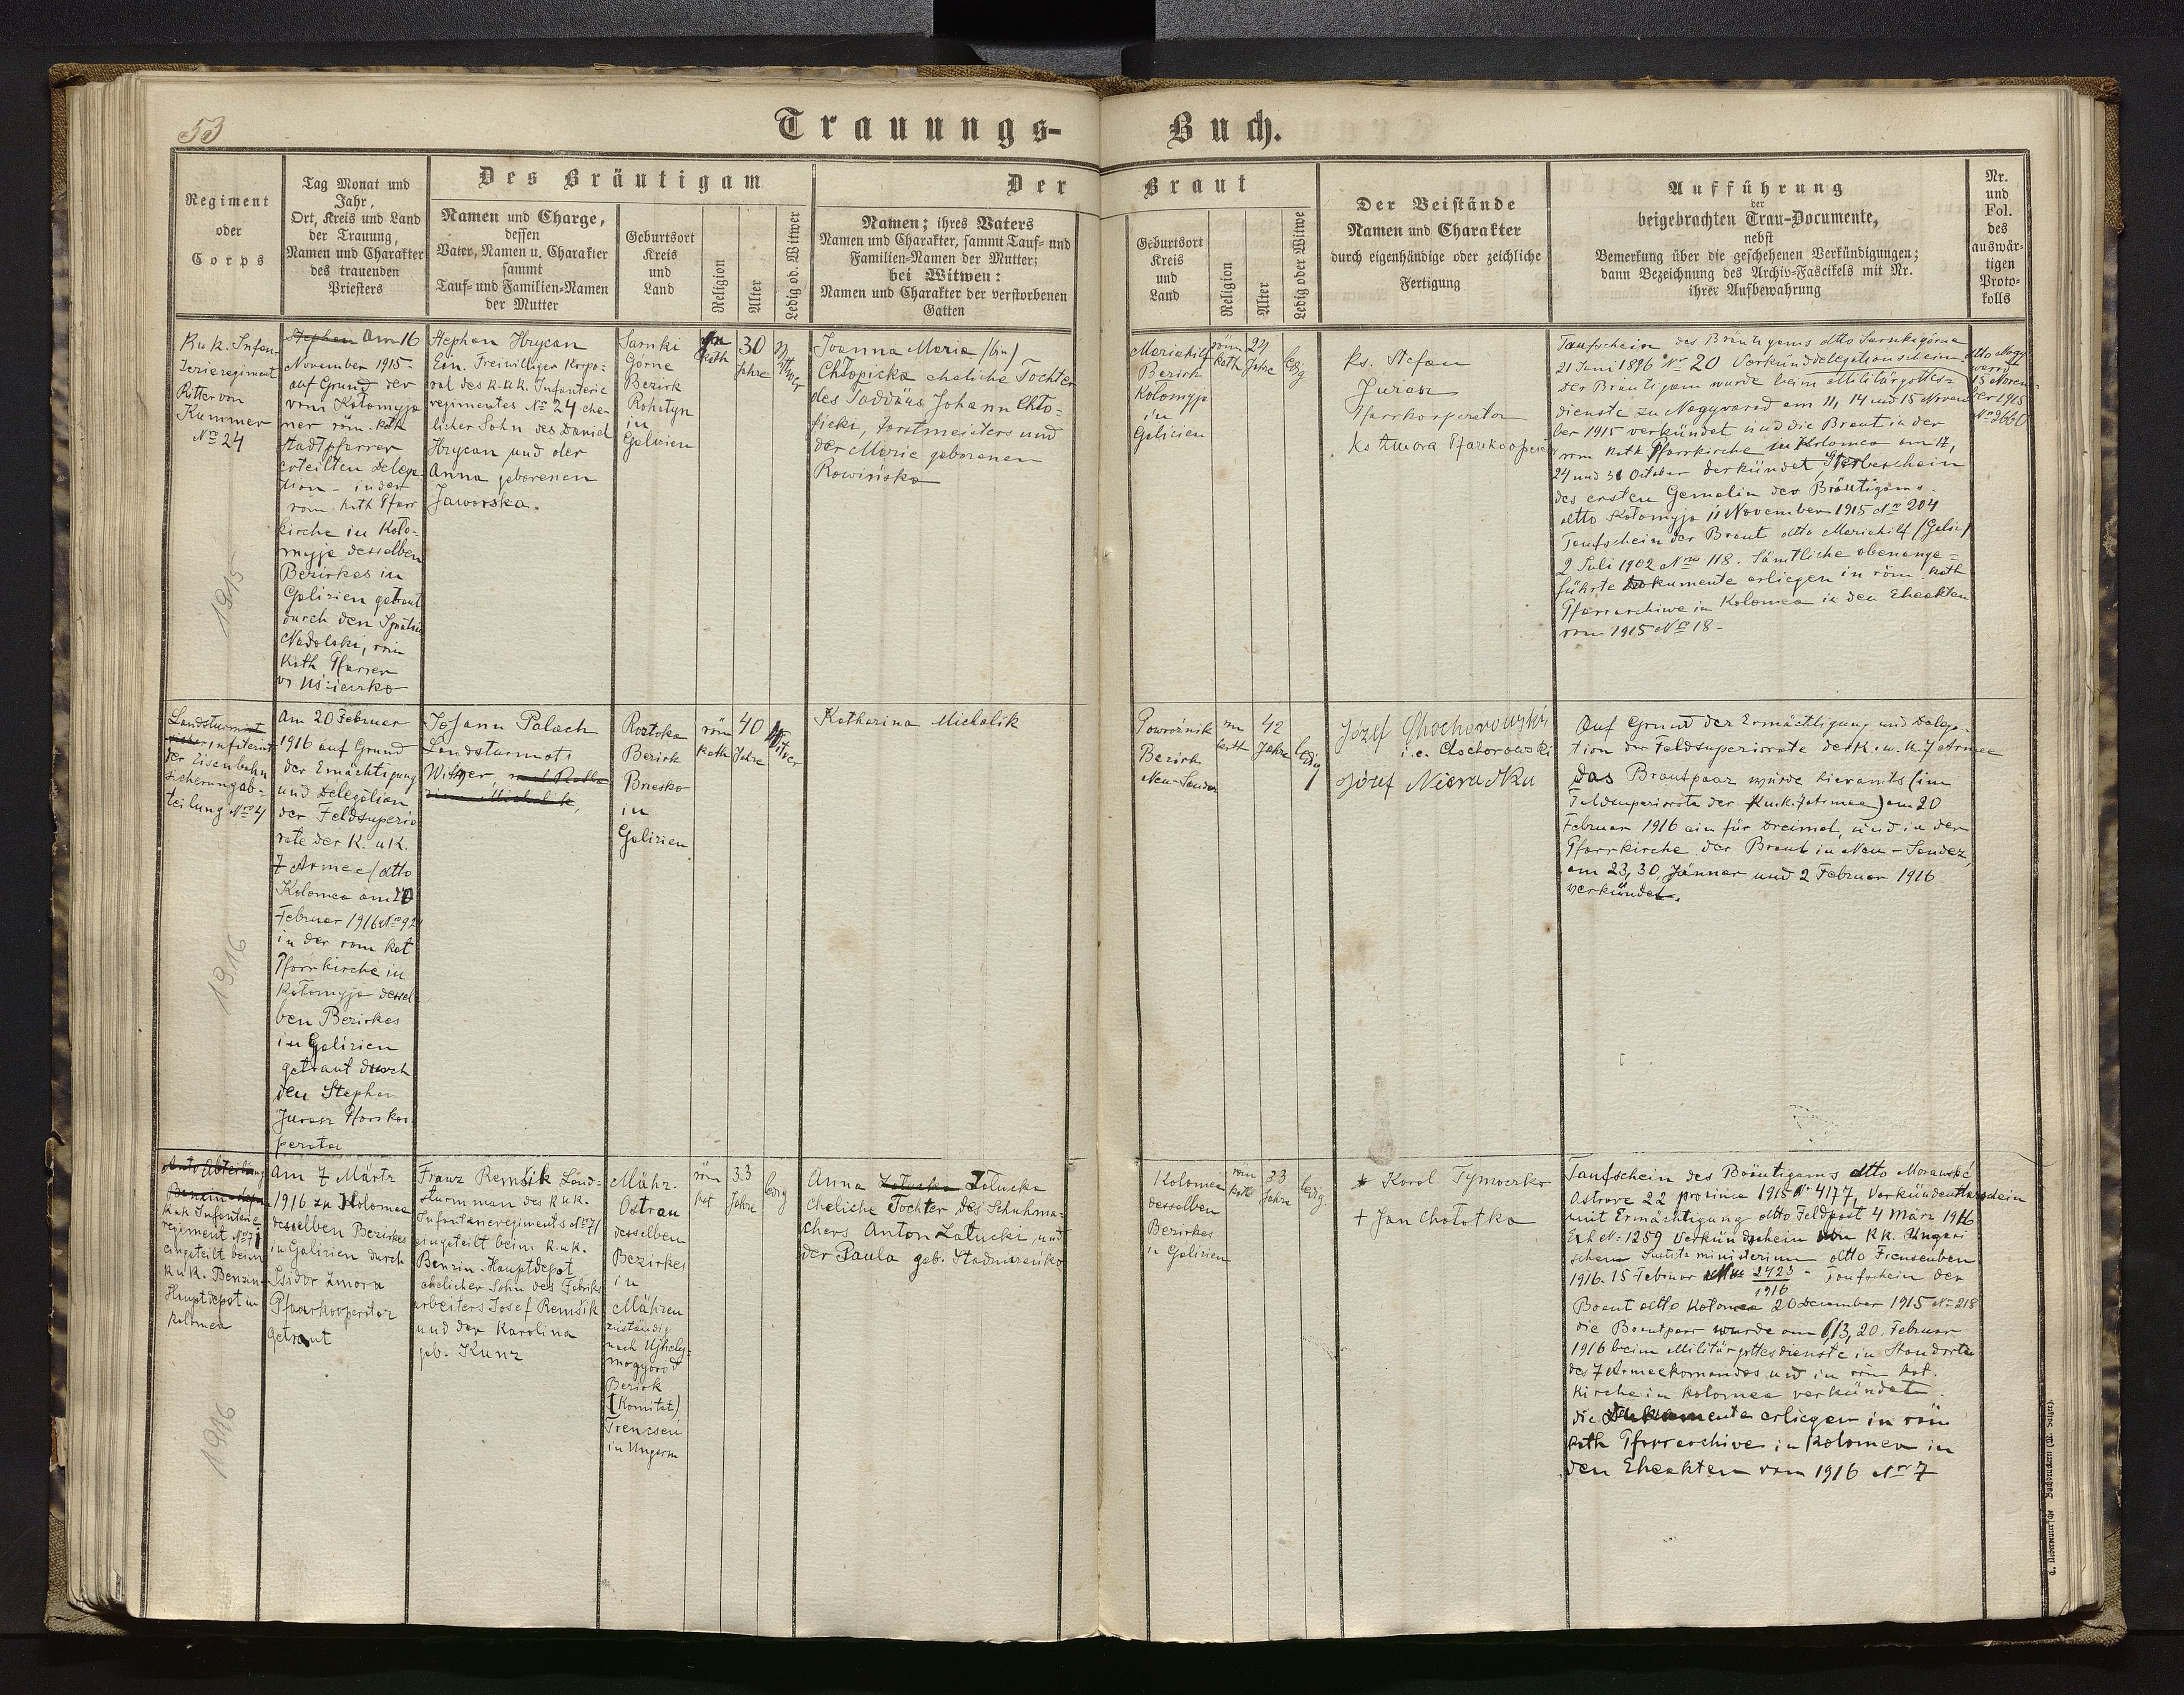 53
Trauungs-
Buch.
Regiment
oder
Corps
Tag Monat und
Jahr,
Ort, Kreis und Land
der Trauung,
Namen und Charakter
des trauenden
Priesters
Des Bräutigam
Namen und Charge,
dessen
Vater, Namen u. Charakter
sammt
Tauf- und Familien-Namen
der Mutter
Geburtsort
Kreis
und
Land
Religion
Alter
Ledig od. Witwer
Der
Braut
Namen; ihres Vaters
Namen und Charakter, sammt Tauf- und
Familien-Namen der Mutter;
bei Witwen:
Namen und Charakter der verstorbenen
Gatten
Geburtsort
Kreis
und
Land
Religion
Alter
Ledig oder Witwe
Der Beistände
Namen und Charakter
durch eigenhändige oder zeichliche
Fertigung
Aufführung
der
beigebrachten Trau-Documente,
nebst
Bemerkung über die geschehenen Verkündigungen;
dann Bezeichnung des Archiv-Fascikels mit Nr.
ihrer Aufbewahrung
Nr.
und
Fol.
des
auswär-
tigen
Proto-
kolls
K u k. Infan-
terieregiment
Ritter von
Kummer
No 24
1915
Stephan Am 16
November 1915
auf Grund der
vom Kołomyja
ner röm. kath
Stadtpfarrer
erteilten Delega-
tion - in der
rom. kath Pfarr
kirche in Koło-
myja desselben
Bezirkes in
Galizien getraut
durch den Ignatius
Nadolski, röm
kath Pfarrer
Stephan Hrycan
Ein. Freiwilliger Korpo-
ral des k.u.k. Infanterie
regimentes No 24 ehe-
licher Sohn des Daniel
Hrycan und der
Anna geborenen
Jaworska.
Sarnki
Górne
Bezirk
Rohatyn
in
Galizien
kath
30
Jahre
Wittwer
Joanna Maria (bin)
Chłopicka eheliche Tochter
des Taddäus Johann Chło-
picki, Forstmeisters und
der Marie geborenen
Rowińska
Mariahilf
Bezirk
Kolomyja
in
Galicien
röm
kath
24
Jahre
ledig
Ks. Stefan
Jurasz
Pfarrkooperator
Ks Zmora Pfarrkooperator
Taufschein des Bräutigams dtto Sarnkigórne
21 Juni 1896 No 20 Verkünddelegationschein
der Bräutigam wurde beim Militärgottes-
dienste zu Nagyvarad am 11, 14 und 15 Novem
ber 1915 verkündet und die Braut in der
rom kath Pfarrkirche in Kolomea am 17,
24 und 31 October verkündet Sterbeschein
des ersten Gemalin des Bräutigams
dtto Kołomyja 11 November 1915 No 204
Taufschein der Braut dtto Mariahilf (Galiz)
2 Juli 1902 No 118. Sämtliche obenange-
führte Dokumente erliegen in röm. kath
Pfarrarchive in Kolomea in den Eheakten
vom 1915 No 18 -
dtto Nagy
warad
15 Novem-
ber 1915
No 2660
Landsturmist
der Eisenbahn
sicherungsab-
teilung No 4
1916
Am 20 Februar
1916 auf Grund
der Ermächtigung
und Delegation
der Feldsuperio
rate der K. u K.
7 Armee (dtto
Kolomea am 20
Februar 1916 No 92
in der rom kat
Pfarrkirche in
Kołomyja dessel
ben Bezirkes
in Galizien
getraut durch
den Stephan
Jurasz Pfarrkoo
perator
Johann Palach
Landsturmist
Witwer,
Roztoka
Bezirk
Brzesko
in
Galizien
röm
kath
40
Jahre
Witwer
Katharina Michalik
Powroźnik
Bezirk
Neu-Sandez
rm
kath
42
Jahre
ledig
Józef Chochorowski
i.e. Chochorowski
Józef Nieradka
Auf Grund der Ermächtigung und Delega-
tion der Feldsuperiorate der K. u. K. 7 Armee
das Brautpaar wurde hieramts (im
Feldsuperiorate der K.u.K. 7 Armee) am 20
Februar 1916 ein für Dreimal, und in der
Pfarrkirche der Braut in Neu-Sandez,
am 23, 30, Jänner und 2 Februar 1916
verkündet.
Auto Abteilung
K.u.k Infanterie
regiment No 71
eingeteilt beim
k.u.k. Benzin
Hauptdepot in
Kolomea
1916
Am 7 März
1916 zu Kolomea
desselben Bezirkes
in Galizien durch
Isidor Zmora
Pfarrkooperator
getraut
Franz Remšik Land-
sturmman des k.u.k.
Infanterieregiments No 71
eingeteilt beim k.u.k.
Benzin-Hauptdepot
ehelicher Sohn des Fabriks
arbeiters Josef Remšik
und der Karolina
geb. Kunz
Mähr.
Ostrau
desselben
Bezirkes
in
Mähren
zuständig
nach Ujhely-
mogyoród
Bezirk
(Komitat)
Trencsen
in Ungarn
röm
kat
33
Jahre
ledig
Anna Załucka Załucka
eheliche Tochter des Schuhma-
chers Anton Załucki, und
der Paula geb. Stadniczenko
Kolomea
desselben
Bezirkes
in Galizien
röm
kath
33
Jahre
ledig.
+ Karol Tymoczko
+ Jan Chołotka
Taufschein des Bräutigams dtto Morawské
Ostrove 22 prosince 1915 No 4177, Verkündschein
mit Ermächtigung dtto Feldpost 4 März 1916
Exh No 1259 Verkündschein vom kk. Ungari
schem Justizministerium
1916. 15 Februar 2423/1916 - Taufschein der
Braut dtto Kolomea 20 December 1915 No 218
die Brautpaar wurde am 6, 13, 20. Februar
1916 beim Militärgottesdienste in Standorte
des 7 Armeekomandos und in röm kat.
Kirche in Kolomea verkündet.
die Dokumente erliegen in röm
kath Pfarrarchive in Kolomea in
den Eheakten vom 1916 No 7